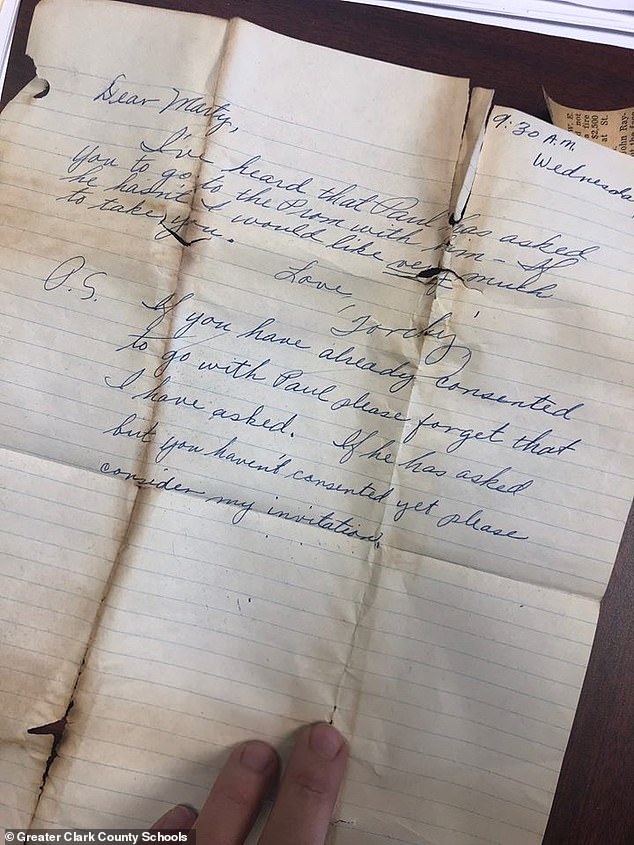 9:30 A.M.
Wednesday
Dear Marty,
I've heard that Paul has asked
you to go to the Prom with him - If
he hasn't I would like very much
to take you.
Love,
'Torchy'
P.S. If you have already consented
to go with Paul please forget that
I have asked. If he has asked
but you haven't consented yet please
consider my invitation.
John Ray-
$2,500
at St.
© Greater Clark County Schools